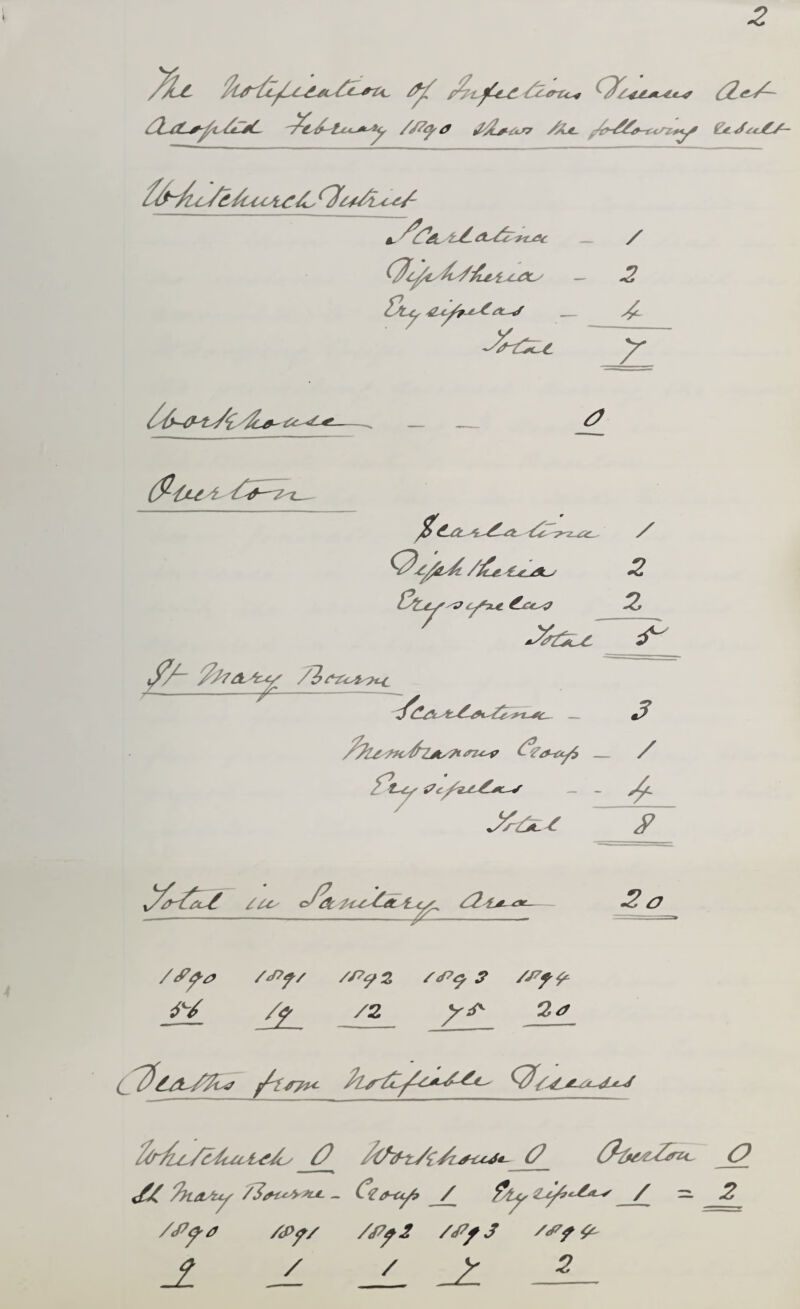 2
The Notification of Infectious Diseases Act
Adopted February 1890 shows the following result
Whitchurch District
Scarlatina – 1
Diphtheria – 2
Erysipelas – 4
Total 7
Workhouse – – 0
Overton
Scarlatina 1
Diphtheria 2
Erysipelas 2
Total 5
St Mary Bourne
Scarlatina – 3
Membranous Croup – 1
Erysipelas – – 4
Total 8
Total in Sanitary Area 20
1890 1891 1892 1893 1894
56 19 12 75 20
Deaths from Notifiable Diseases
Whitchurch 0 Workhouse 0 Overton 0
St Mary Bourne – Croup 1 Erysipelas 1 = 2
1890 1891 1892 1893 1894
9 1 1 7 2